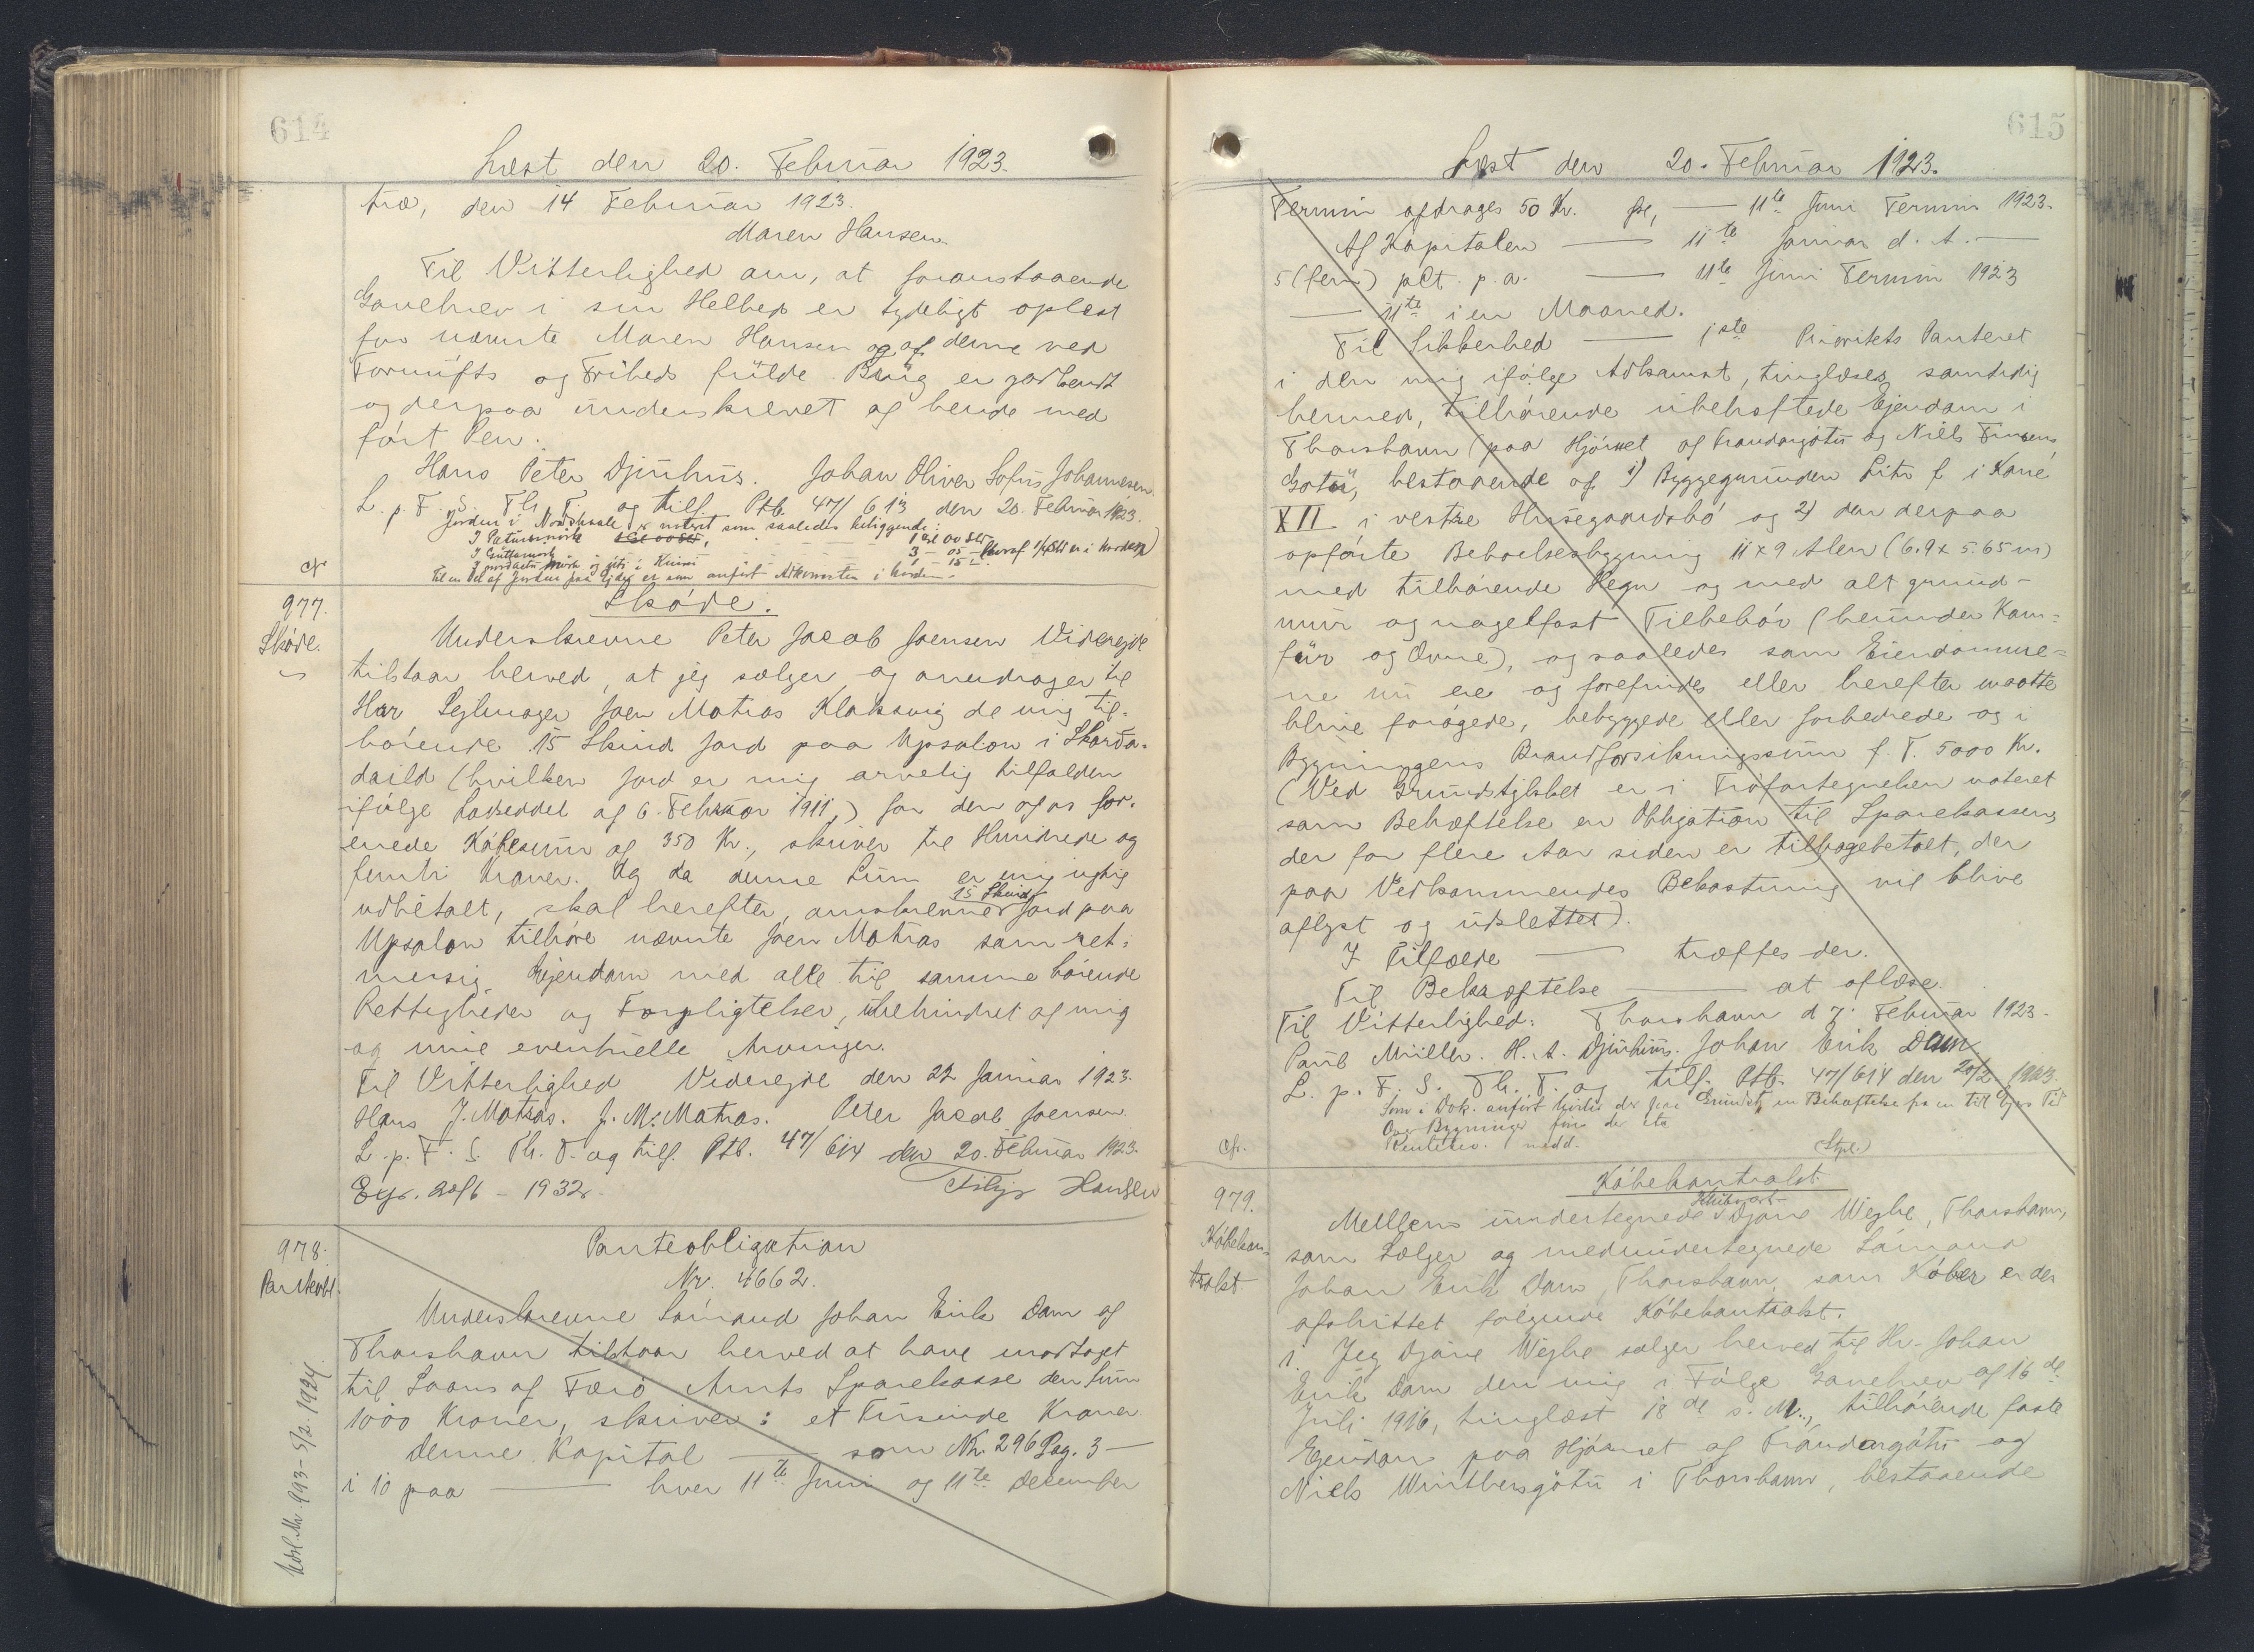 614
Læst den 20. Februar 1923.
træ, den 14 Februar 1923.
Maren Hansen.
Til Vitterlighed om, at foranstaaende
Gavebrev i sin Helhed er tydeligt oplæst
for nævnte Maren Hansen og af denne ved
Fornufts og Friheds fulde Brug er godkendt
og derpaa underskrevet af hende med
ført Pen.
Hans Peter Djurhuus. Johan Oliver Sofus Johannesen.
L. p. F. S. Th. T. og tilf. Ptb. 47/613 den 20. Februar 1923.
Jorden i Nordskaale er noteret som saaledes beliggende:
cfr
977.
Skøde.
Skøde.
Underskrevne Peter Jacob Joensen Viderejde
tilstaar herved, at jeg sælger og overdrager til
Herr Sejlmager Joen Matras Klaksvig de mig til-
hørende 15 Skind Jord paa Upsalon i Skarða-
daild (hvilken Jord er mig arvelig tilfalden
ifølge Lodseddel af 6. Februar 1911,) for den af os for-
enede Købesum af 350 Kr., skriver tre Hundrede og
femti Kroner. Og da denne Sum er mig rigtig
udbetalt, skal herefter omskrevne 15 Skind Jord paa
Upsalon tilhøre nævnte Joen Matras som ret-
mæssig Ejendom med alle til samme hørende
Rettigheder og Forpligtelser, ubehindret af mig
og mine eventuelle Arvinger.
Til Vitterlighed Viderejde den 22 Januar 1923.
Hans J. Matras. J. M. Matras. Peter Jacob Joensen.
L. p. F. S. Th. T. og tilf. Ptb. 47/614 den 20. Februar 1923.
Hansen
978.
Panteobl.
Panteobligation
Nr. 4662.
Underskrevne Sømand Johan Erik Dam af
Thorshavn tilstaar herved at have modtaget
til Laans af Færø Amts Sparekasse den Sum
1000 Kroner, skriver: et Tusinde Kroner.
Denne Kapital — som Nr. 296 Pag. 3 —
i 10 paa — hver 11te Juni og 11te December
615
Læst den 20. Februar 1923.
Termin afdrages 50 Kr. — 11te Juni Termin 1923.
Af Kapitalen — 11te Januar d. A. —
5 (fem) pCt. p. a. — 11te Juni Termin 1923
— 11te i en Maaned.
Til Sikkerhed — 1ste Prioritets Panteret
i den mig ifølge Adkomst, tinglæses samtidig
hermed, tilhørende ubehæftede Ejendom i
Thorshavn (paa Hjørnet af Trondargøtu og Niels Finsens
Gøtu, bestaaende af 1) Byggegrunden Litr f i Karré
XII i vestre Husegaardsbø og 2) den derpaa
opførte Beboelsesbygning 11 x 9 Alen (6.9 x 5.65 m)
med tilhørende Hegn og med alt grund-
mur og nagelfast Tilbehør (herunder Kom-
fur og Ovne), og saaledes som Eiendomme-
ne nu ere og forefindes eller herefter maatte
blive forøgede, bebyggede eller forbedrede og i
Bygningens Brandforsikringssum f. T. 5000 Kr.
(Ved Grundstykket er i Trøfortegnelsen noteret
som Behæftelse en Obligation til Sparekassen,
der for flere Aar siden er tilbagebetalt, der
paa Vedkommendes Bekostning vil blive
aflyst og udslettet).
I Tilfælde — træffes der.
Til Bekræftelse — at aflæse.
Til Vitterlighed: Thorshavn d 7. Februar 1923.
Paul Müller. H. A. Djurhuus. Johan Erik Dam
L. p. F. S. Th. T. og tilf. Ptb. 47/614 den 20/2 1923.
Cfr.
979.
Købekon-
trakt.
Købekontrakt.
Mellem undertegnede Djóne Wejhe, Thorshavn,
som Sælger og medundertegnede Sømand
Johan Erik Dam, Thorshavn, som Køber er der
afsluttet følgende Købekontrakt.
1. Jeg Djóne Wejhe sælger herved til Hr. Johan
Erik Dam den mig i Følge Gavebrev af 16de
Juli 1916, tinglæst 18de s. M., tilhørende faste
Ejendom paa Hjørnet af Tróndargøtu og
Niels Winthersgøtu i Thorshavn, bestaaende